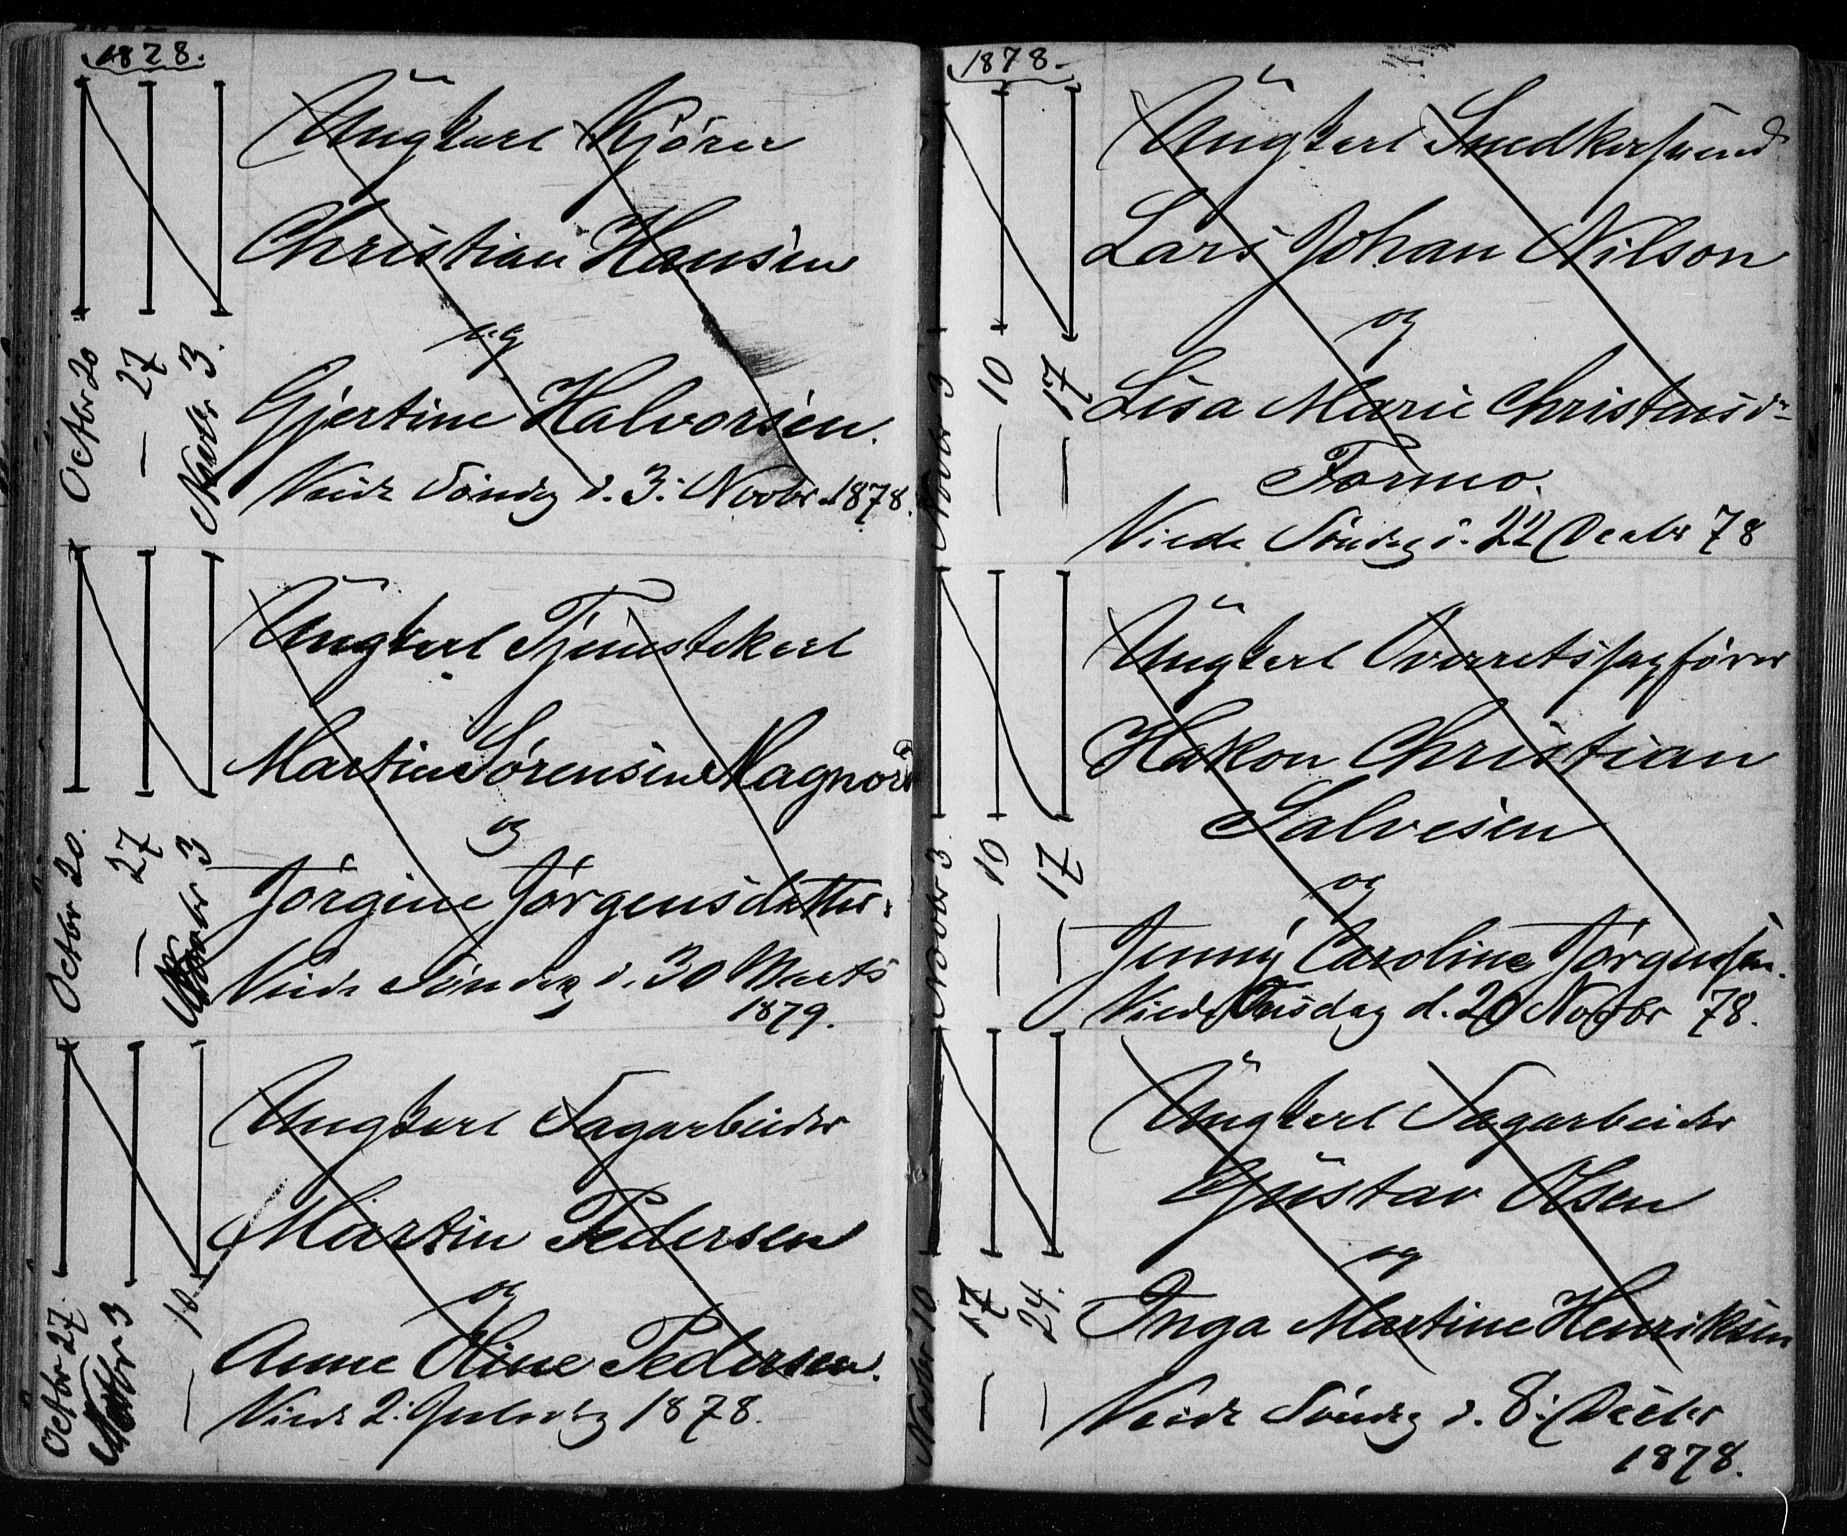 1878.
Octbr 20
— 27
Novbr 3.
Ungkarl Kjører
Christian Hansen
og
Gjertine Halvorsen.
Viede Søndag d. 3: Novbr 1878.
Octbr 20.
— 27
Novbr 3
Ungkarl Tjenestekarl
Martin Sørensen Magnor
og
Jørgine Jørgensdatter.
Viede Søndag d. 30 Marts
1879.
Octbr 27.
Novbr 3
— 10
Ungkarl Sagarbeider
Martin Pedersen
og
Anne Oline Pedersen.
Viede 2: Juledag 1878.
1878.
Novbr 3
— 10
— 17
Ungkarl Snedkersvend
Lars Johan Nilson
og
Lisa Marie Christansdr
Formo.
Viede Søndag d. 22 Decbr 78
Novbr 3.
— 10
— 17
Ungkarl Overretssagfører
Hakon Christian
Salvesen
og
Jenny Caroline Jørgensen.
Viede Onsdag d. 20 Novbr 78.
Novbr 10
— 17
— 24.
Ungkarl Sagarbeider
Gustav Olsen
og
Inga Martine Henriksen
Viede Søndag d. 8: Decbr
1878.